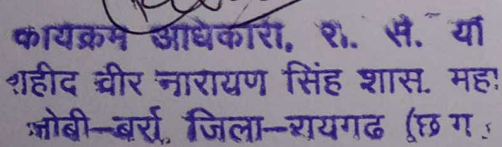 कार्यक्रम अधिकारी, रा. से. यो
शहीद वीर नारायण सिंह शास. महा
जोबी-बर्रा, जिला-रायगढ (छ ग.